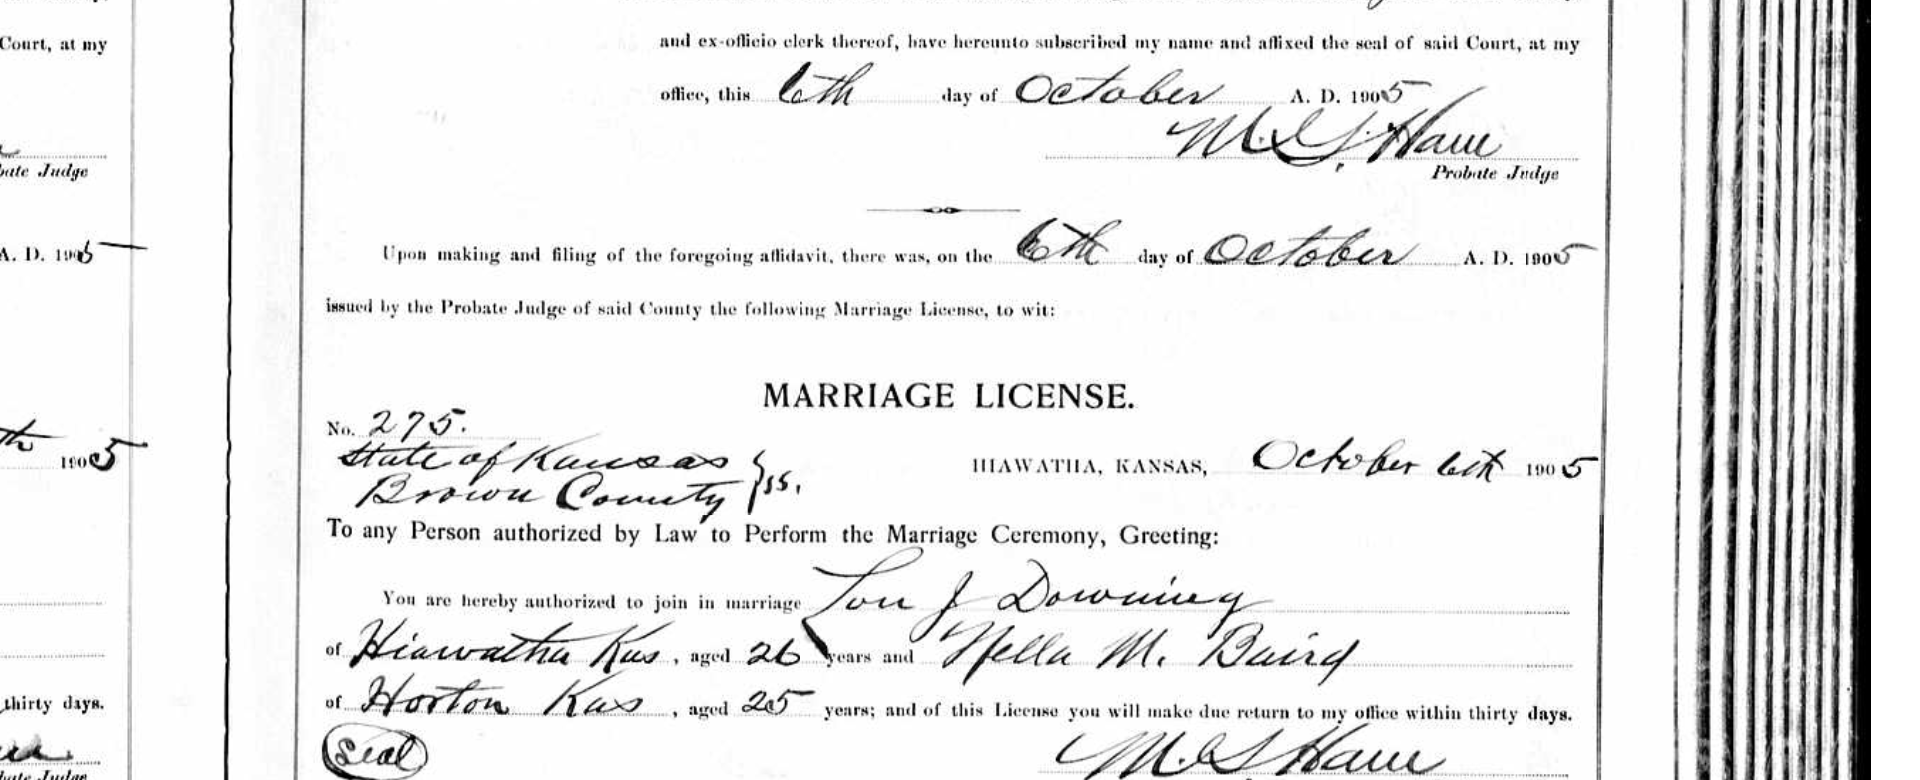 and ex-officio clerk thereof, have hereunto subscribed my name and affixed the seal of said Court, at my
office, this 6th day of October A. D. 1905
Probate Judge
Upon making and filing of the foregoing affidavit, there was, on the 6th day of October A. D. 1905
issued by the Probate Judge of said County the following Marriage License, to wit:
MARRIAGE LICENSE.
No. 275.
State of Kansas
Brown County } ss.
HIAWATHA, KANSAS, October 6th 1905
To any Person authorized by Law to Perform the Marriage Ceremony, Greeting:
You are hereby authorized to join in marriage Lou J Downing
of Hiawatha Kas, aged 26 years and Nella M. Baird
of Horton Kas, aged 25 years; and of this License you will make due return to my office within thirty days.
Seal
Court, at my
bate Judge
A. D. 1905
th 1905
thirty days.
bate Judge